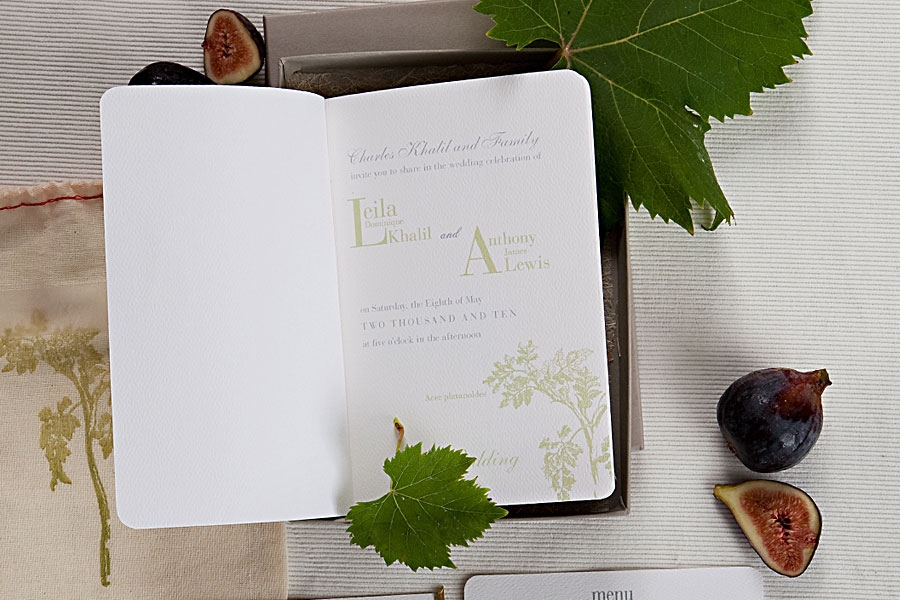 Charles Khalil and Family
invite you to share in the wedding celebration of
Leila
Dominique
Khalil and
Anthony
James
Lewis
on Saturday, the Eighth of May
TWO THOUSAND AND TEN
at five o'clock in the afternoon
Acer platanoides
menu